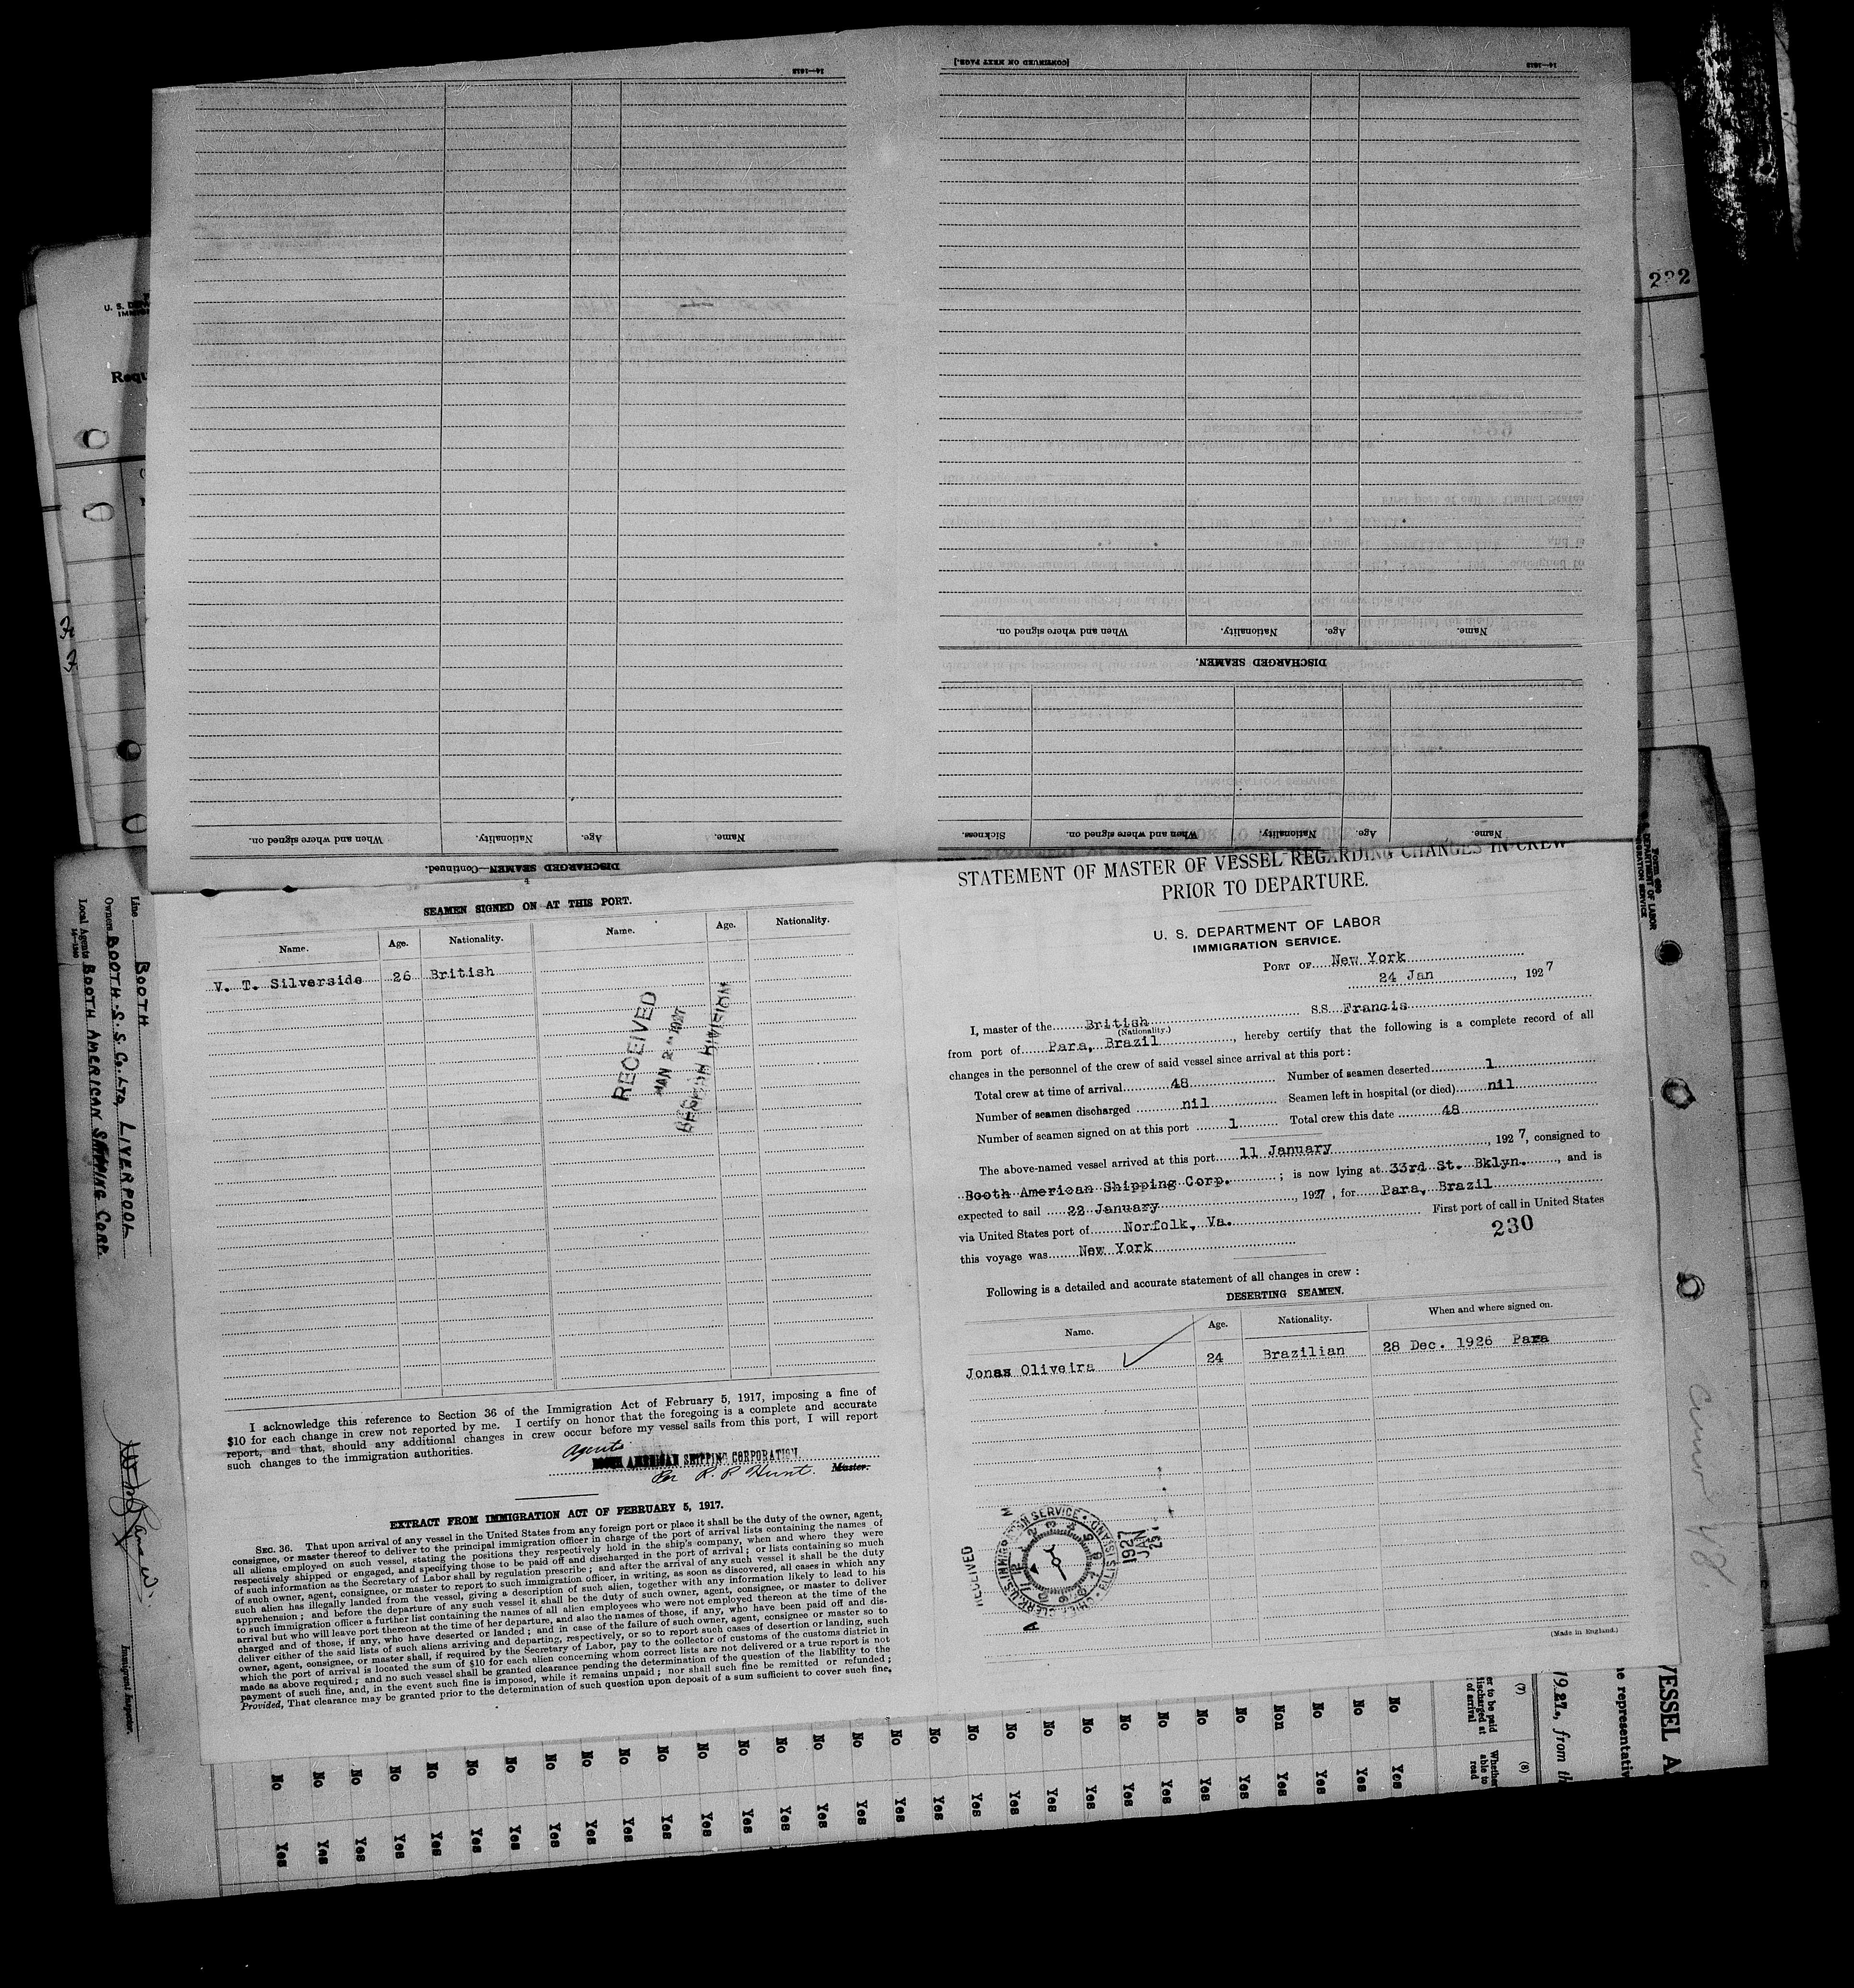 14—1618
[CONTINUED ON NEXT PAGE.]
14—1618
When and where signed on. Nationality. Age. Name.
DISCHARGED SEAMEN.
Sickness. When and where signed on. Nationality. Age. Name.
When and where signed on. Nationality. Age. Name.
DISCHARGED SEAMEN—Continued.
232
STATEMENT OF MASTER OF VESSEL REGARDING CHANGES IN CREW
PRIOR TO DEPARTURE.
U. S. DEPARTMENT OF LABOR
IMMIGRATION SERVICE.
PORT OF New York
24 Jan, 1927
I, master of the British SS. Francis
(Nationality.)
from port of Para, Brazil, hereby certify that the following is a complete record of all
changes in the personnel of the crew of said vessel since arrival at this port:
Total crew at time of arrival 48 Number of seamen deserted 1
Number of seamen discharged nil Seamen left in hospital (or died) nil
Number of seamen signed on at this port 1 Total crew this date 48
The above-named vessel arrived at this port 11 January, 1927, consigned to
Booth American Shipping Corp. ; is now lying at 33rd St. Bklyn., and is
expected to sail 22 January, 1927, for Para, Brazil
via United States port of Norfolk, Va. First port of call in United States
this voyage was New York
230
Following is a detailed and accurate statement of all changes in crew:
DESERTING SEAMEN.
Name. Age. Nationality. When and where signed on.
Jonas Oliveira 24 Brazilian 28 Dec. 1926 Para
RECEIVED
CHIEF CLERK U.S. IMMIGRATION SERVICE • ELLIS ISLAND
1927
JAN
25
(Made in England.)
SEAMEN SIGNED ON AT THIS PORT.
Name. Age. Nationality. Name. Age. Nationality.
V. T. Silverside 26 British
RECEIVED
JAN 2 1927
DIVISION
I acknowledge this reference to Section 36 of the Immigration Act of February 5, 1917, imposing a fine of
$10 for each change in crew not reported by me. I certify on honor that the foregoing is a complete and accurate
report, and that, should any additional changes in crew occur before my vessel sails from this port, I will report
such changes to the immigration authorities.
Agents
BOOTH AMERICAN SHIPPING CORPORATION
Per R. P. Hunt. Master.
EXTRACT FROM IMMIGRATION ACT OF FEBRUARY 5, 1917.
SEC. 36. That upon arrival of any vessel in the United States from any foreign port or place it shall be the duty of the owner, agent,
consignee, or master thereof to deliver to the principal immigration officer in charge of the port of arrival lists containing the names of
all aliens employed on such vessel, stating the positions they respectively hold in the ship's company, when and where they were
respectively shipped or engaged, and specifying those to be paid off and discharged in the port of arrival; or lists containing so much
of such information as the Secretary of Labor shall by regulation prescribe; and after the arrival of any such vessel it shall be the duty
of such owner, agent, consignee, or master to report to such immigration officer, in writing, as soon as discovered, all cases in which any
such alien has illegally landed from the vessel, giving a description of such alien, together with any information likely to lead to his
apprehension; and before the departure of any such vessel it shall be the duty of such owner, agent, consignee, or master to deliver
to such immigration officer a further list containing the names of all alien employees who were not employed thereon at the time of the
arrival but who will leave port thereon at the time of her departure, and also the names of those, if any, who have been paid off and dis-
charged and of those, if any, who have deserted or landed; and in case of the failure of such owner, agent, consignee or master so to
deliver either of the said lists of such aliens arriving and departing, respectively, or so to report such cases of desertion or landing, such
owner, agent, consignee, or master shall, if required by the Secretary of Labor, pay to the collector of customs of the customs district in
which the port of arrival is located the sum of $10 for each alien concerning whom correct lists are not delivered or a true report is not
made as above required; and no such vessel shall be granted clearance pending the determination of the question of the liability to the
payment of such fine, and, in the event such fine is imposed, while it remains unpaid; nor shall such fine be remitted or refunded;
Provided, That clearance may be granted prior to the determination of such question upon deposit of a sum sufficient to cover such fine.
Line BOOTH
Owners BOOTH. S. S. Co. LTD. LIVERPOOL
Local Agents BOOTH AMERICAN SHIPPING CORP.
14—1240
Immigrant Inspector.
U. S. DEP
Requ
Form 689
DEPARTMENT OF LABOR
IMMIGRATION SERVICE
48.
VESSEL A
he representativ
1927, from th
(7) (8)
er to be paid
discharged at
of arrival
Whether
able to
read
No No No No No No No No No No No No No No No No No No No No No No No No No No Non No No No
Yes Yes Yes Yes Yes Yes Yes Yes Yes Yes Yes Yes Yes Yes Yes Yes Yes Yes Yes Yes Yes Yes Yes Yes Yes Yes Yes Yes Yes Yes